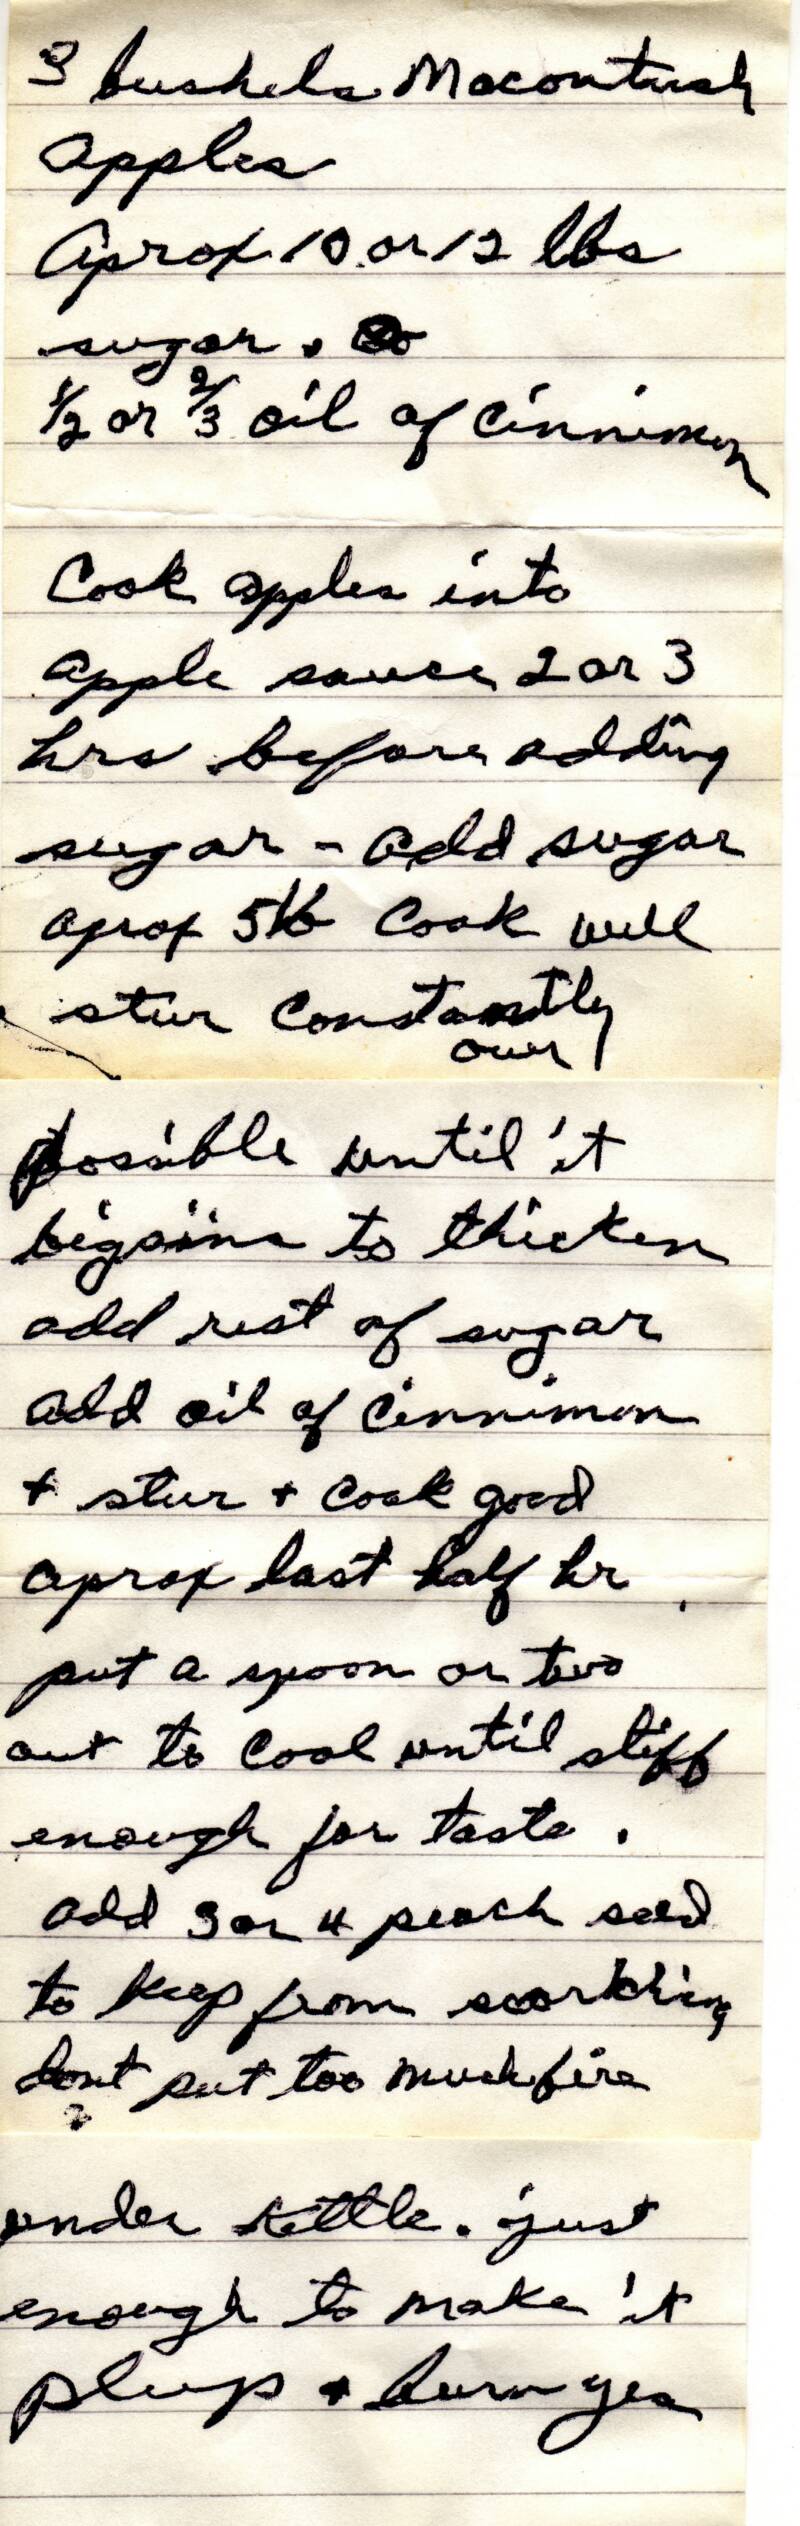 3 bushels Macontush
apples
Aprox 10 or 12 lbs
sugar.
1/2 or 2/3 oil of Cinnimon
Cook apples into
apple sauce 2 or 3
hrs before adding
sugar - add sugar
aprox 5 lb Cook well
stur Constantly
over
possible until it
begains to thicken
add rest of sugar
add oil of Cinnimon
+ stur + cook good
aprox last half hr.
put a spoon or two
out to Cool until stiff
enough for taste.
add 3 or 4 peach seed
to keep from scorching
dont put too much fire
under kettle. just
enough to make it
plup + burn yea